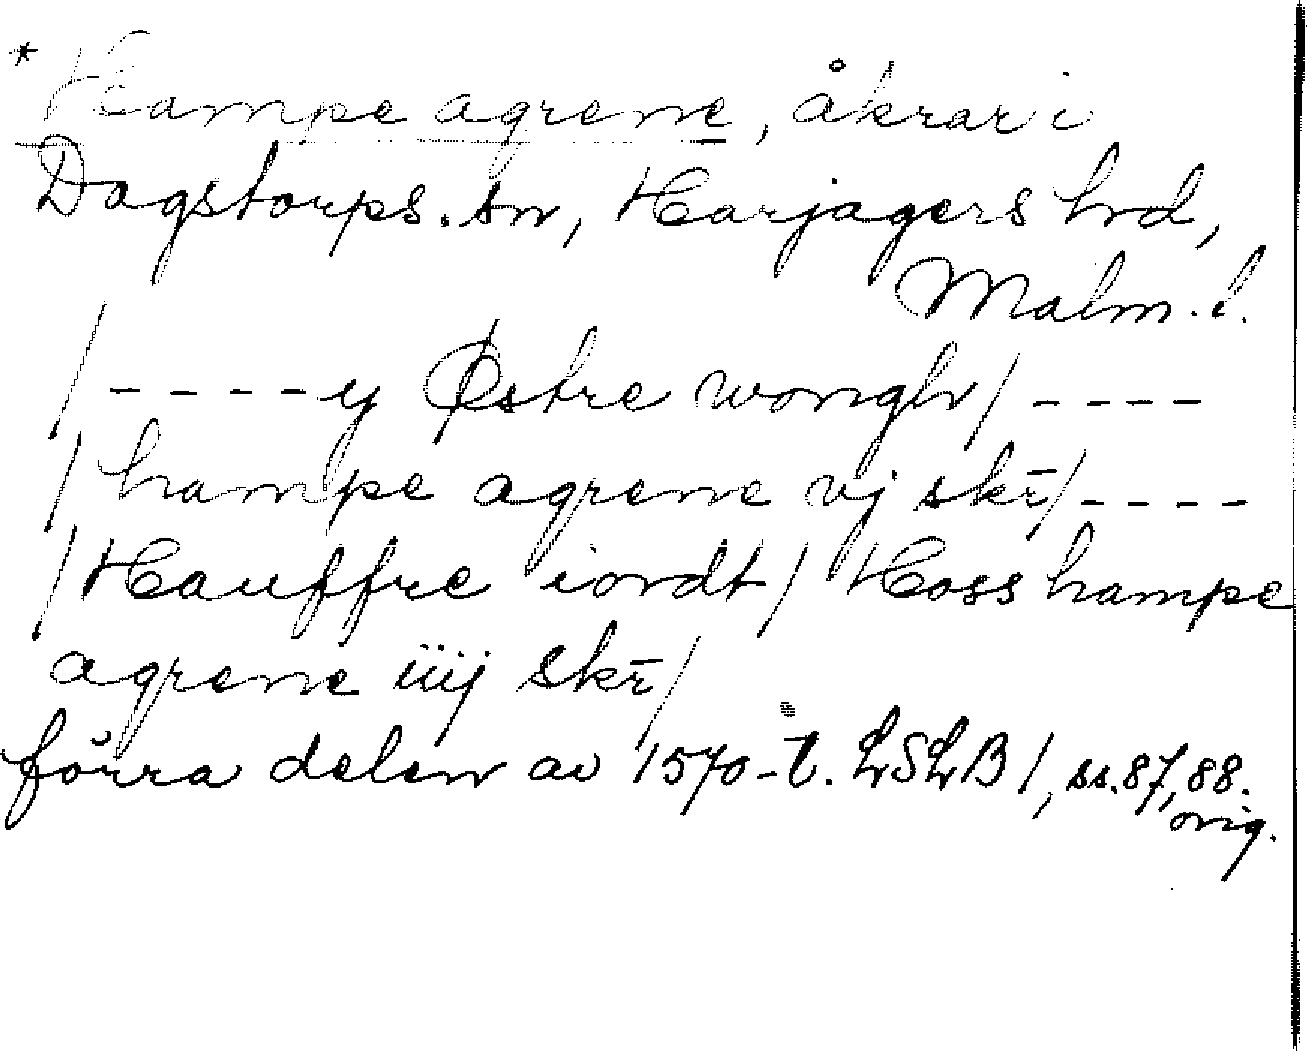 * Hampe agrene, åkrar i
Dagstorps. sn, Harjagers hd,
Malm. l.
/ - - - - y Østre wongh / - - - -
/ hampe agrene vj skr̄ / - - - -
/ Hauffre iordt / Hoss hampe
agrene iiij skr̄ /
förra delen av 1570-t. LSLB 1, ss. 87, 88.
orig.